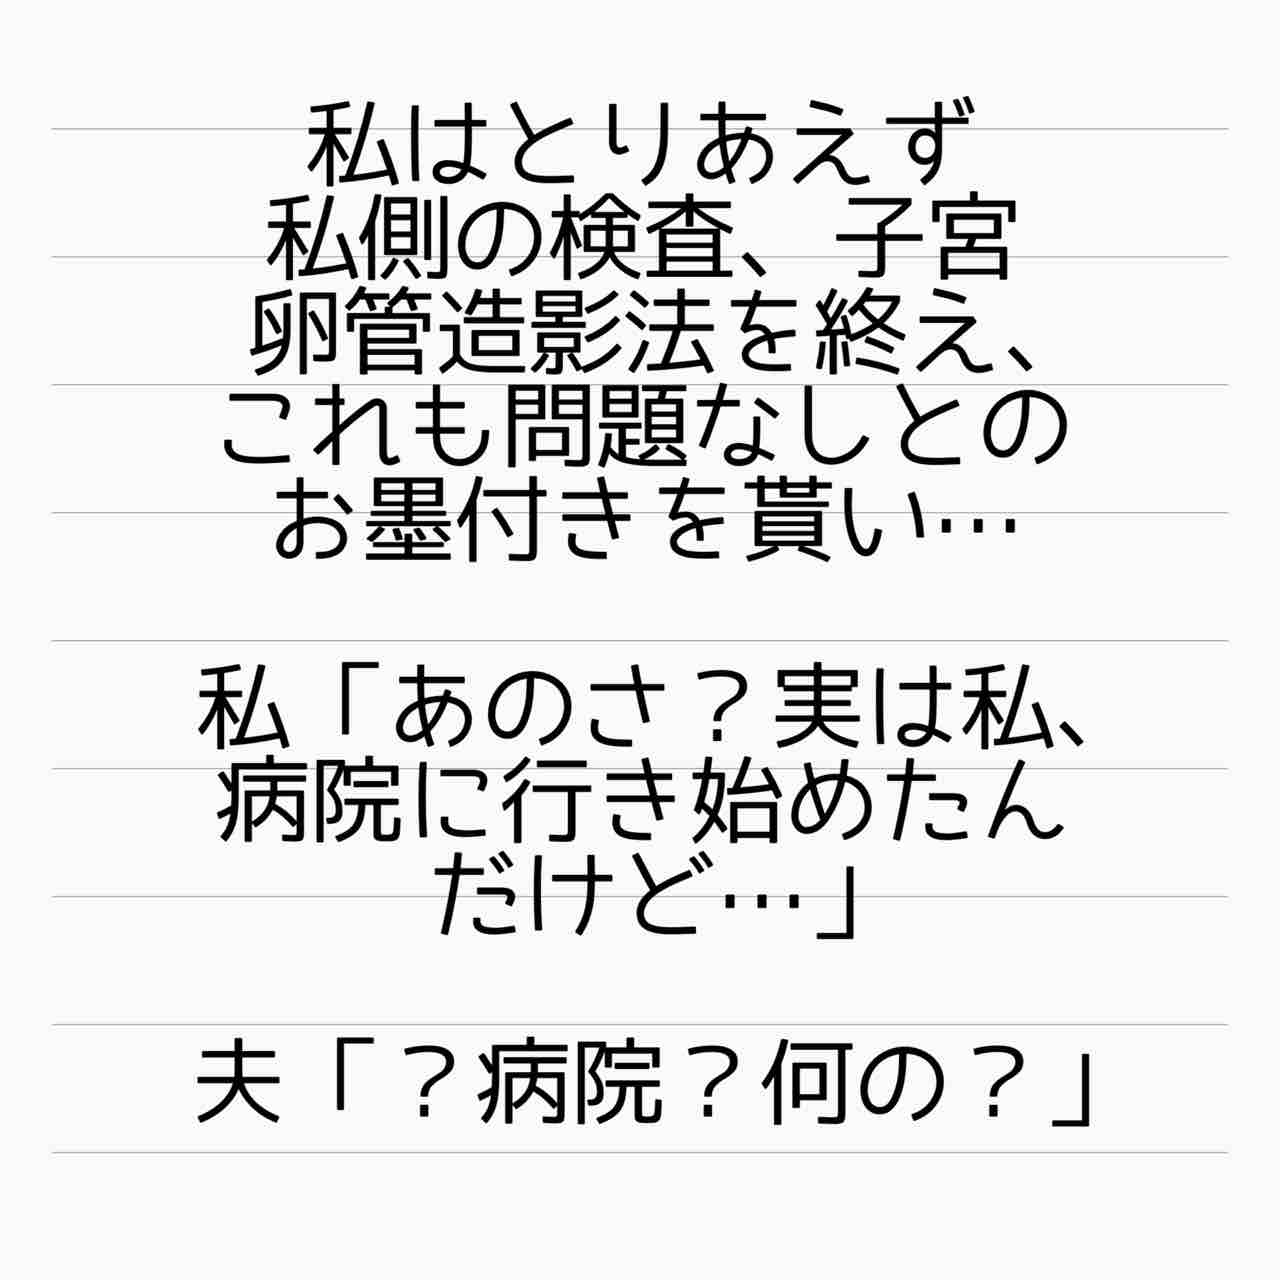 私はとりあえず
私側の検査、子宮
卵管造影法を終え、
これも問題なしとの
お墨付きを貰い…
私「あのさ？実は私、
病院に行き始めたん
だけど…」
夫「？病院？何の？」